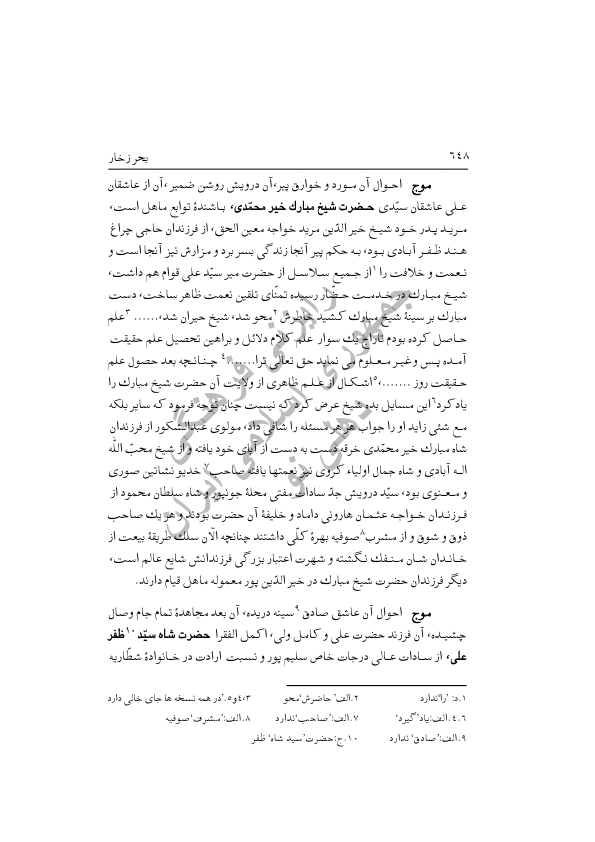 ۶۴۸ بحر زخار
موج احوال آن مورد و خوارق پیر، آن درویش روشن ضمیر، آن از عاشقان
علی عاشقان سیّدی حضرت شیخ مبارك خیر محمّدی، باشندهٔ توابع ماهل است،
مرید پدر خود شیخ خیر الدّین مرید خواجه معین الحق، از فرزندان حاجی چراغ
هند ظفر آبادی بود، به حکم پیر آنجا زندگی بسر برد و مزارش نیز آنجا است و
نعمت و خلافت را۱ از جمیع سلاسل از حضرت میر سیّد علی قوام هم داشت،
شیخ مبارك در خدمت حضّار رسیده تمنّای تلقین نعمت ظاهر ساخت، دست
مبارك بر سینهٔ شیخ مبارك کشید خاطرش۲ محو شد، شیخ حیران شد،...... ۳علم
حاصل کرده بودم تاراج یك سوار علم کلام دلائل و براهین تحصیل علم حقیقت
آمده پس وغیر معلوم می نماید حق تعالی ترا.......۴ چنانچه بعد حصول علم
حقیقت روز .......،۵اشکال از علم ظاهری از ولایت آن حضرت شیخ مبارك را
یاد کرد۶ این مسایل بده شیخ عرض کرد که نیست چنان توجه فرمود که سایر بلکه
مع شئی زاید او را جواب هر هر مسئله را شافی داد، مولوی عبدالشکور از فرزندان
شاه مبارك خیر محمّدی خرقه دست به دست از آبای خود یافته و از شیخ محبّ الله
اله آبادی و شاه جمال اولیاء کروی نیز نعمتها یافته صاحب۷ خدیو نشاتین صوری
و معنوی بود، سیّد درویش جدّ سادات مفتی محلهٔ جونپور و شاه سلطان محمود از
فرزندان خواجه عثمان هارونی داماد و خلیفهٔ آن حضرت بودند و هر یك صاحب
ذوق و شوق و از مشرب۸ صوفیه بهرهٔ کلّی داشتند چنانچه الآن سلك طریقهٔ بیعت از
خاندان شان منفك نگشته و شهرت اعتبار بزرگی فرزندانش شایع عالم است،
دیگر فرزندان حضرت شیخ مبارك در خیر الدّین پور معموله ماهل قیام دارند.
موج احوال آن عاشق صادق۹ سینه دریده، آن بعد مجاهدهٔ تمام جام وصال
چشیده، آن فرزند حضرت علی و کامل ولی، اکمل الفقرا حضرت شاه سیّد۱۰ ظفر
علی، از سادات عالی درجات خاص سلیم پور و نسبت ارادت در خانوادهٔ شطّاریه
۱.د: 'را' ندارد ۲.الف'حاضرش'محو ۳،۴و۵.'در همه نسخه ها جای خالی دارد
۴.۶.الف:یاد'گیرد' ۷.الف:'صاحب'ندارد ۸.الف:'مشرف'صوفیه
۹.الف:'صادق' ندارد ۱۰.ج:حضرت'سید شاه' ظفر
جمهوری اسلامی ایران
رایزنی فرهنگی
دهلی نو